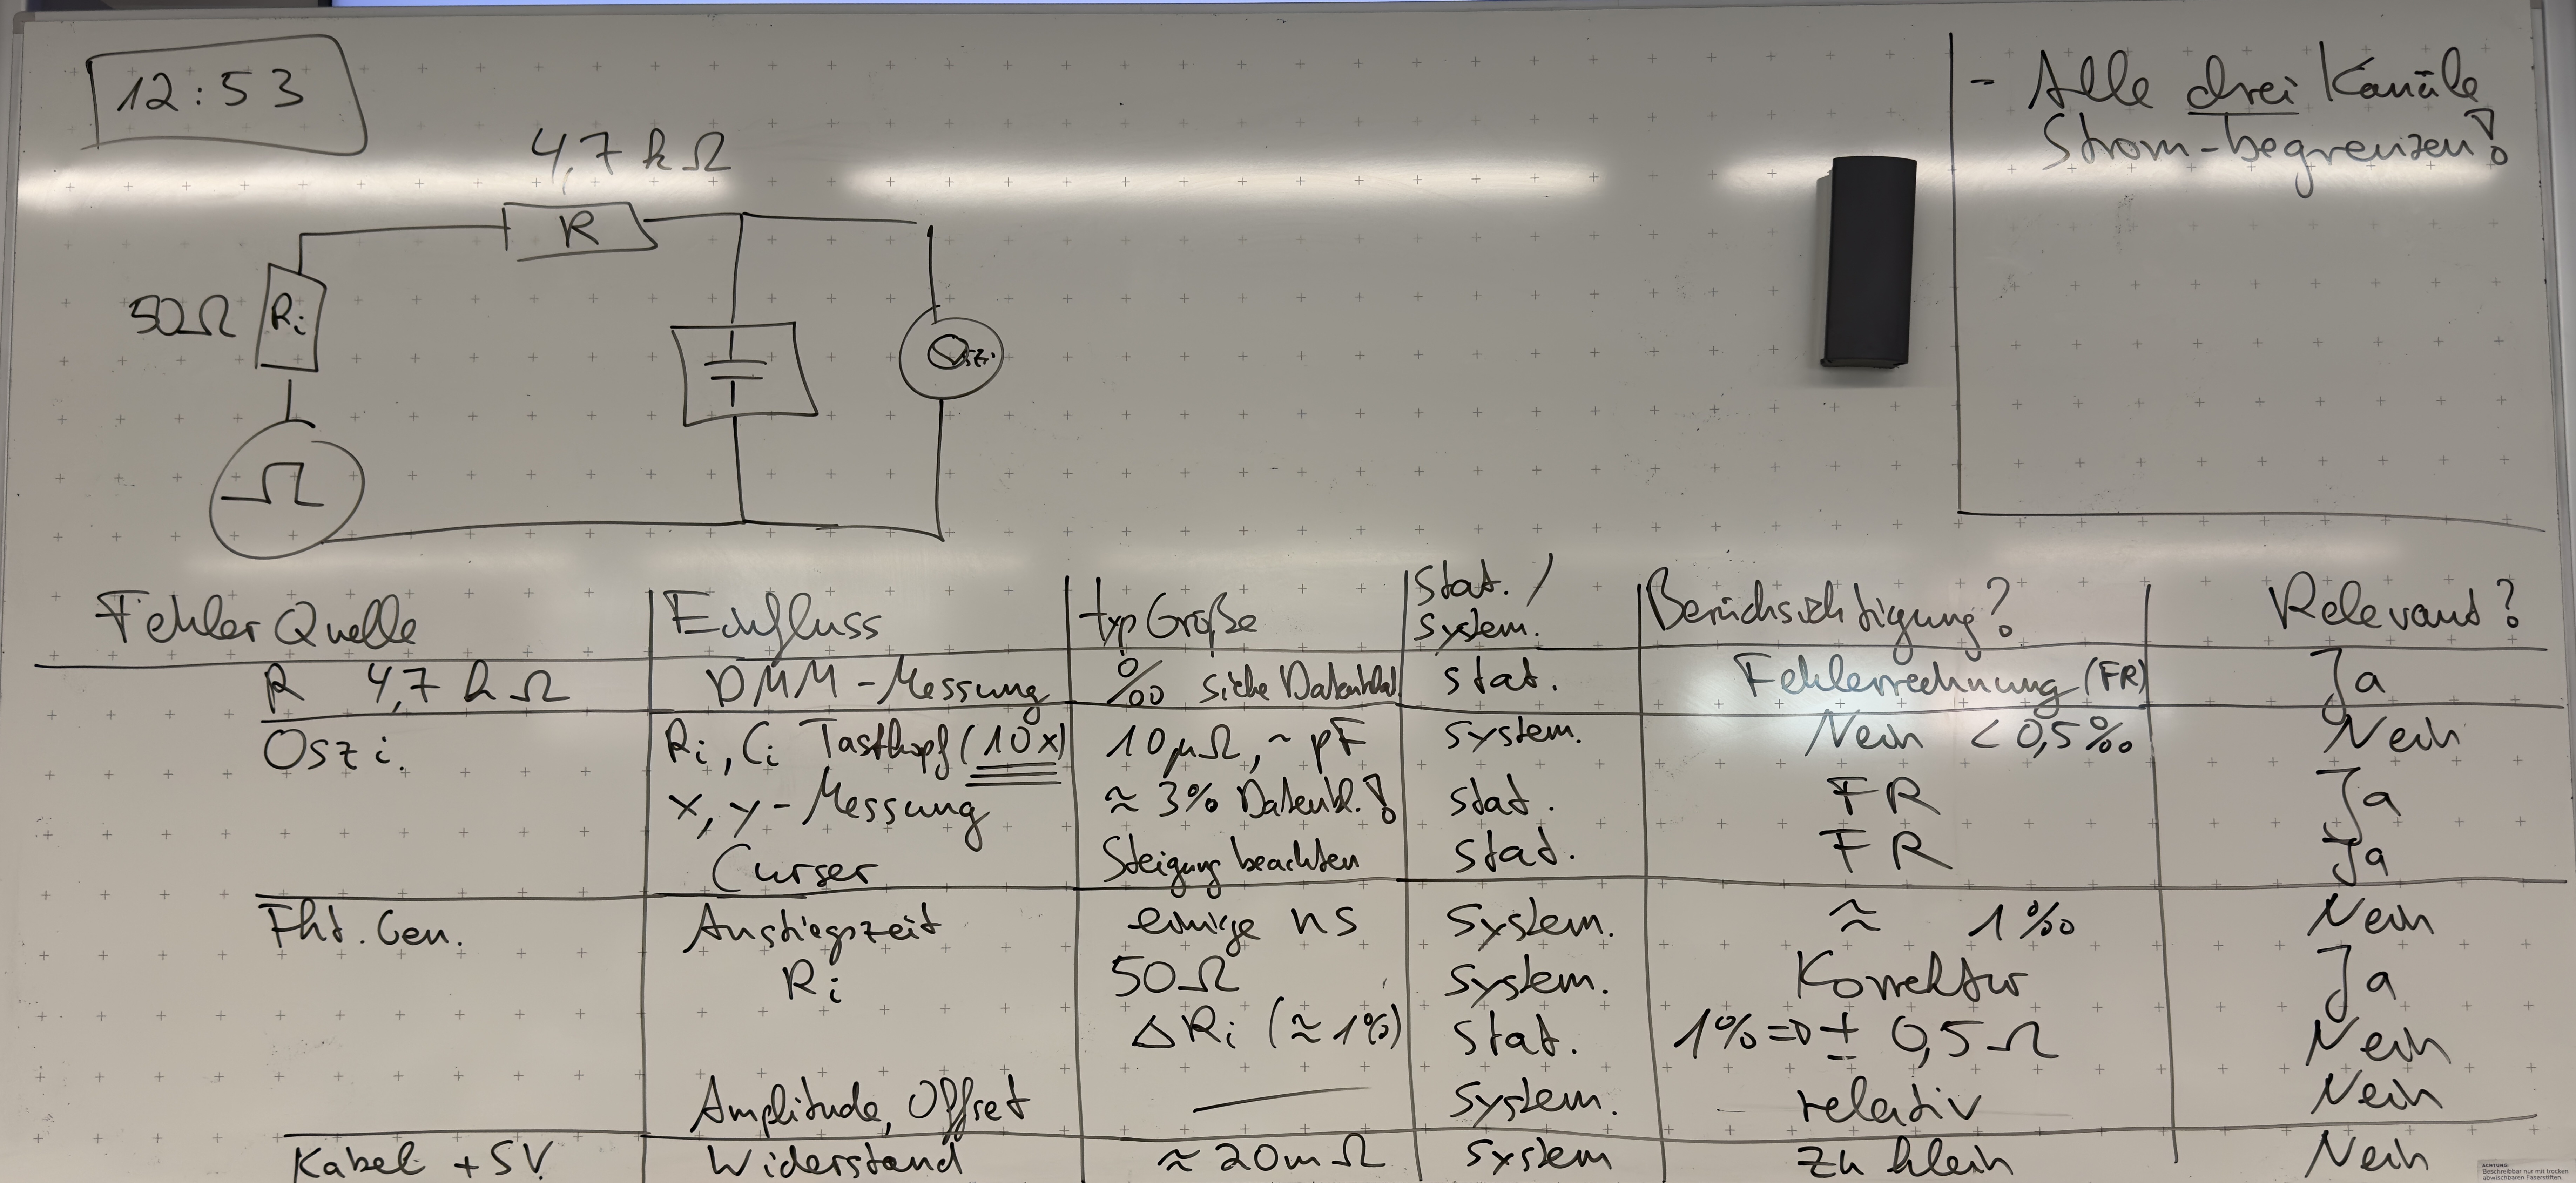 12:53
- Alle drei Kanäle
Strom-begrenzen!
4,7 kΩ
R
50Ω
Ri
Oszi.
Fehler Quelle | Einfluss | typ Größe | Stat. / System. | Berücksichtigung? | Relevant?
R 4,7 kΩ | DMM-Messung | ‰ siehe Datenblat. | stat. | Fehlerrechnung (FR) | Ja
Oszi. | Ri, Ci Tastkopf (10x) | 10µΩ, ~ pF | System. | Nein < 0,5‰ | Nein
x, y-Messung | ≈ 3% Datenbl.! | stat. | FR | Ja
Curser | Steigung beachten | stat. | FR | Ja
Fkt. Gen. | Anstiegszeit | einige ns | System. | ≈ 1‰ | Nein
Ri | 50Ω | System. | Korrektur | Ja
ΔRi (≈1%) | stat. | 1% => ± 0,5Ω | Nein
Amplitude, Offset | — | System. | relativ | Nein
Kabel + SV. | Widerstand | ≈ 20mΩ | System | zu klein | Nein
ACHTUNG:
Beschreibbar nur mit trocken
abwischbaren Faserstiften.